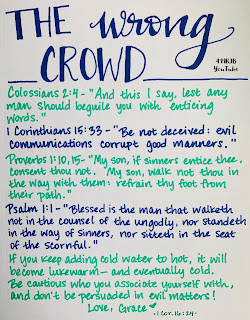 THE wrong
CROWD
#MKJB
YouTube
Colossians 2:4 - "And this I say, lest any
man should beguile you with enticing
words."
1 Corinthians 15:33 - "Be not deceived: evil
communications corrupt good manners."
Proverbs 1:10,15 - "My son, if sinners entice thee,
consent thou not. My son, walk not thou in
the way with them: refrain thy foot from
their path."
Psalm 1:1 - "Blessed is the man that walketh
not in the counsel of the ungodly, nor standeth
in the way of sinners, nor sitteth in the seat
of the scornful."
If you keep adding cold water to hot, it will
become lukewarm - and eventually cold.
Be cautious who you associate yourself with,
and don't be persuaded in evil matters!
Love, Grace
·1 Cor. 16:24·